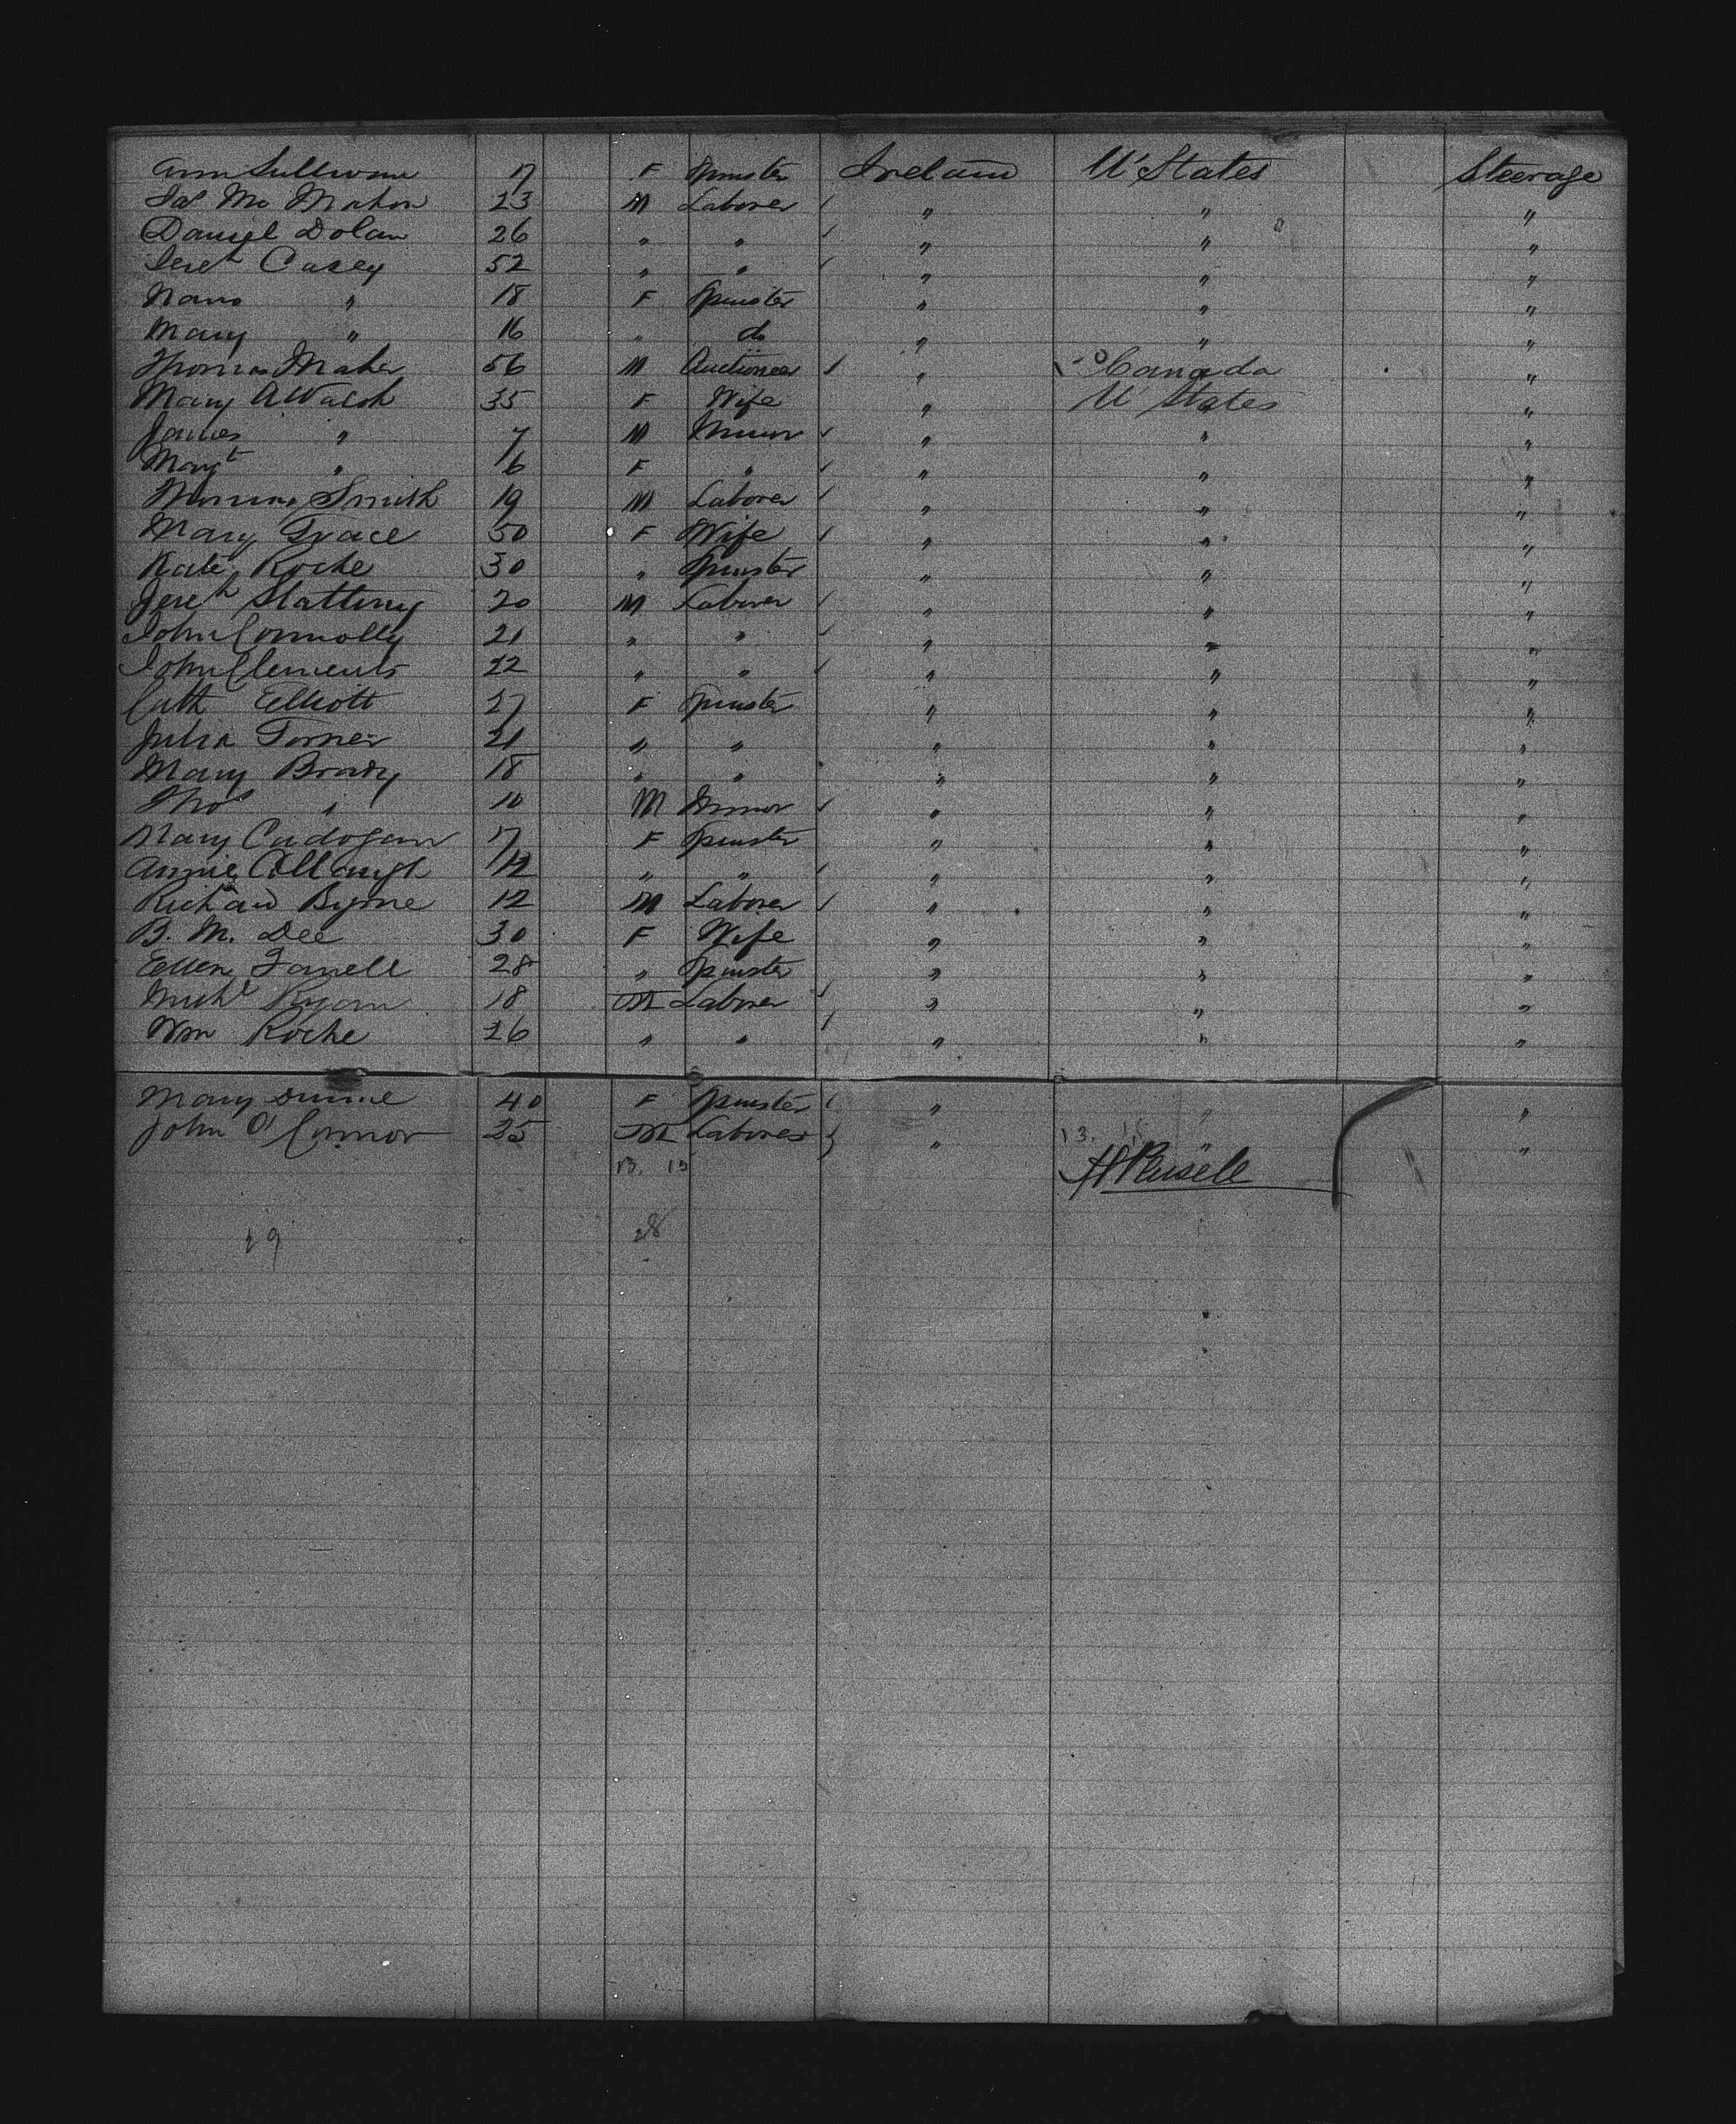 Ann Sullivan 17 F Spinster Ireland U States Steerage
Jas Mc Mahon 23 M Laborer " " "
Daniel Dolan 26 " " " " "
Jereh Casey 52 " " " " "
Nano " 18 F Spinster " " "
Mary " 16 " do " " "
Thomas Maher 56 M Auctioneer " Canada "
Mary A Walsh 35 F Wife " U States "
James " 7 M Minor " " "
Margt " 6 F " " " "
Smith 19 M Laborer " " "
Mary Grace 50 F Wife " " "
Kate Roche 30 " Spinster " " "
Jereh Slattery 20 M Laborer " " "
John Connolly 21 " " " " "
John Clements 22 " " " " "
Cath Elliott 27 F Spinster " " "
Julia 21 " " " " "
Mary Brady 18 " " " " "
Thos " 10 M Minor " " "
Mary Cadogan 17 F Spinster " " "
Annie " " " " "
Richard Byrne 12 M Laborer " " "
B. M. Dee 30 F Wife " " "
Ellen Farrell 28 " Spinster " " "
Michl Ryan 18 M Laborer " " "
Wm Roche 26 " " " " "
Mary Dunne 40 F Spinster " " "
John O'Connor 25 M Laborer " " "
13. 15
28